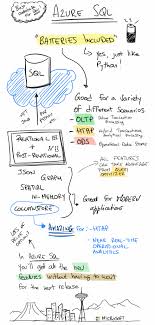 AZURE SQL
"BATTERIES INCLUDED"
Yes, just like
Python!
SQL
Good for a variety
of different Scenarios
OLTP
HTAP
ODS
Operational Data Store
RELATIONAL DB
&
POST-RELATIONAL
ALL FEATURES
CAN TAKE ADVANTAGE
FROM QUERY
OPTIMIZER
JSON
GRAPH
SPATIAL
IN-MEMORY
COLUMNSTORE
Good for MODERN
applications
AMAZING for :- HTAP
- NEAR REAL-TIME
OPERATIONAL
ANALYTICS
IN AZURE SQL
you'll get all the new
features without having to wait
for the next release